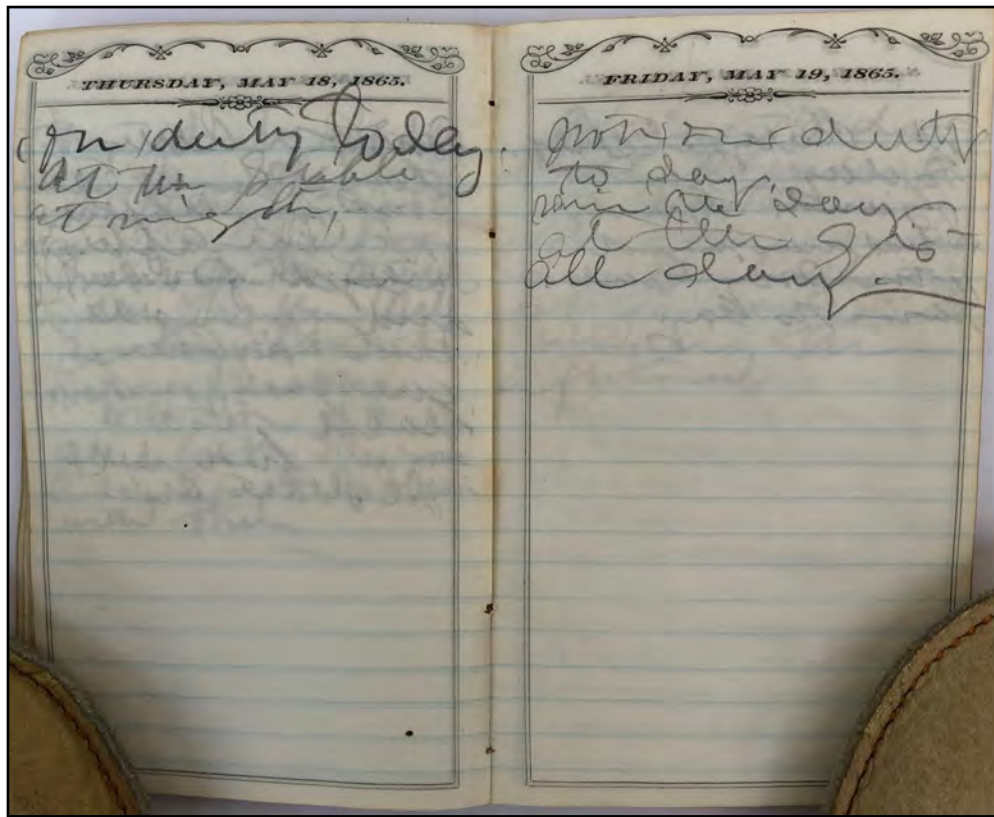 THURSDAY, MAY 18, 1865.
on duty today.
at the Stable
at night,
FRIDAY, MAY 19, 1865.
not on duty
to day,
rain all day
at the
all day.